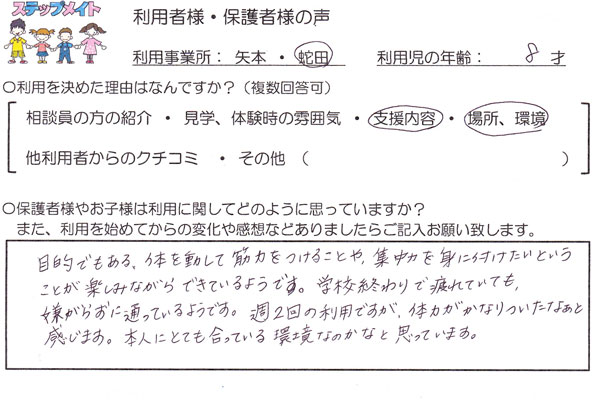 ステップメイト
利用者様・保護者様の声
利用事業所：矢本・蛇田 利用児の年齢：8才
○利用を決めた理由はなんですか？（複数回答可）
相談員の方の紹介 ・ 見学、体験時の雰囲気 ・ 支援内容 ・ 場所、環境
他利用者からのクチコミ ・ その他（ ）
○保護者様やお子様は利用に関してどのように思っていますか？
また、利用を始めてからの変化や感想などありましたらご記入お願い致します。
目的でもある、体を動して筋力をつけることや、集中力を身に付けたいという
ことが楽しみながらできているようです。学校終わりで疲れていても、
嫌がらずに通っているようです。週2回の利用ですが、体力がかなりついたなぁと
感じます。本人にとても合っている環境なのかなと思っています。